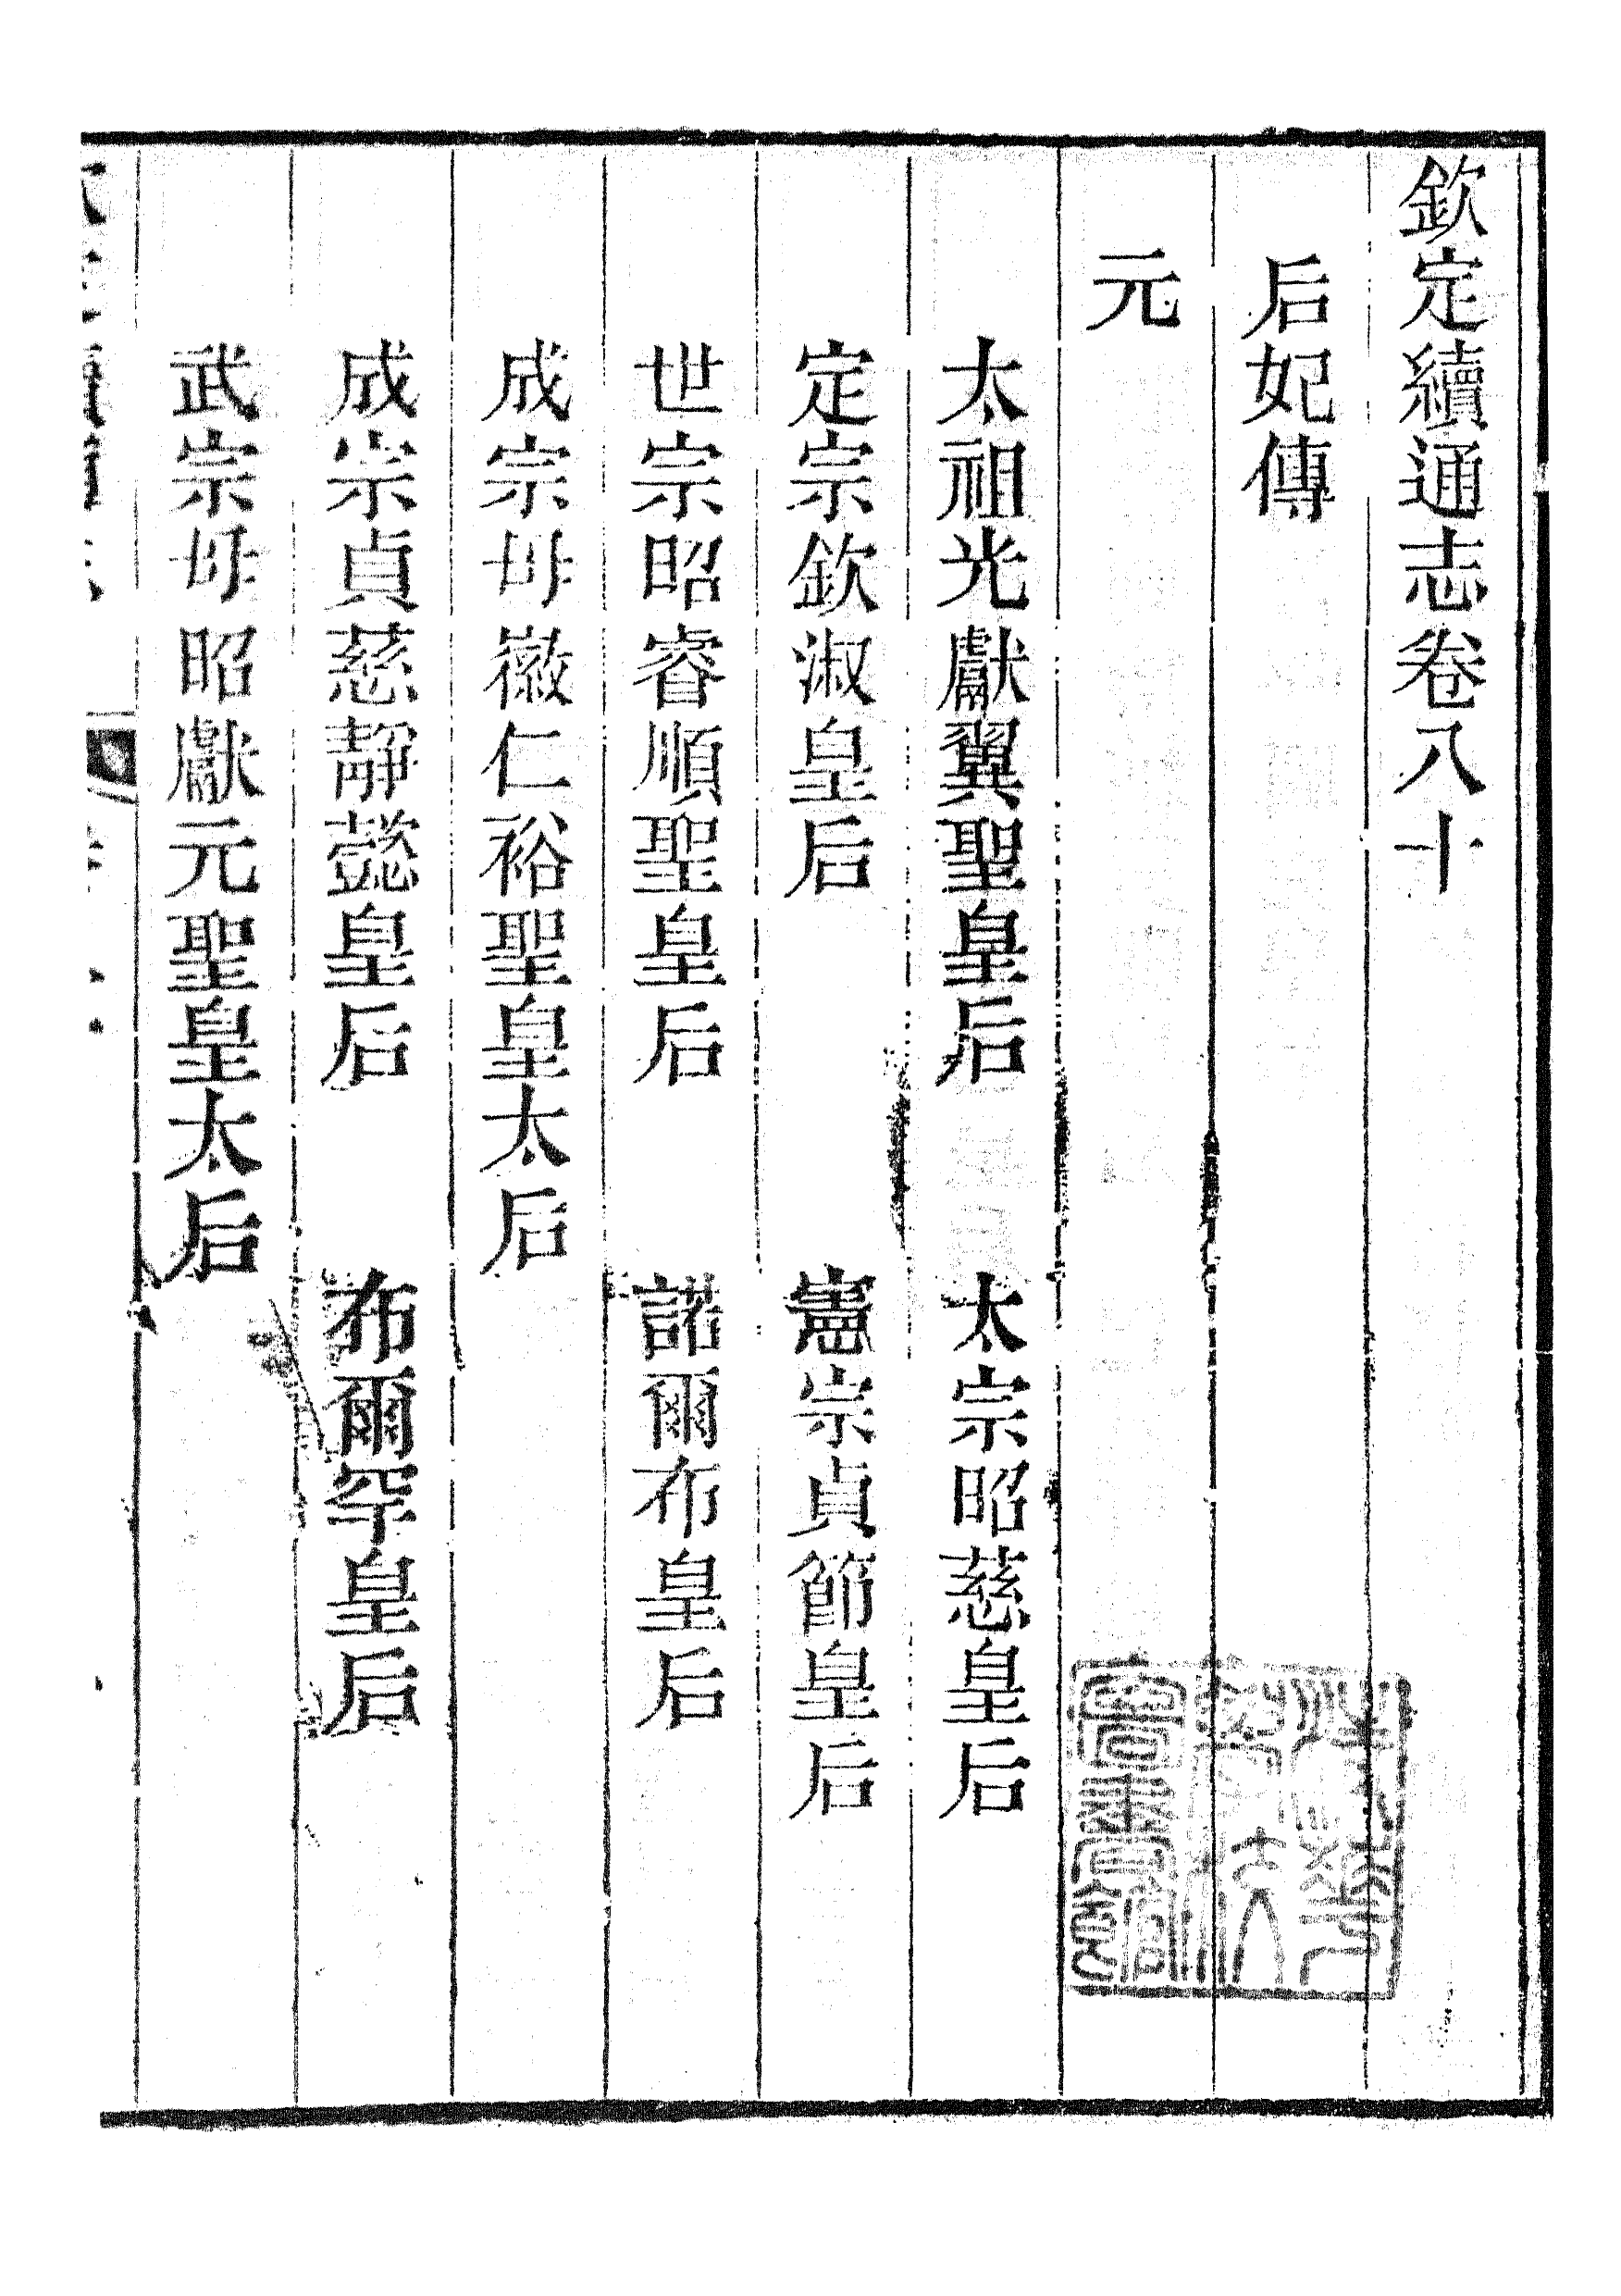 欽定續通志卷八十
后妃傳
元
太祖光獻翼聖皇后　太宗昭慈皇后
定宗欽淑皇后　憲宗貞節皇后
世宗昭睿順聖皇后　諾爾布皇后
成宗母徽仁裕聖皇太后
成宗貞慈靜懿皇后　布爾罕皇后
武宗母昭獻元聖皇太后